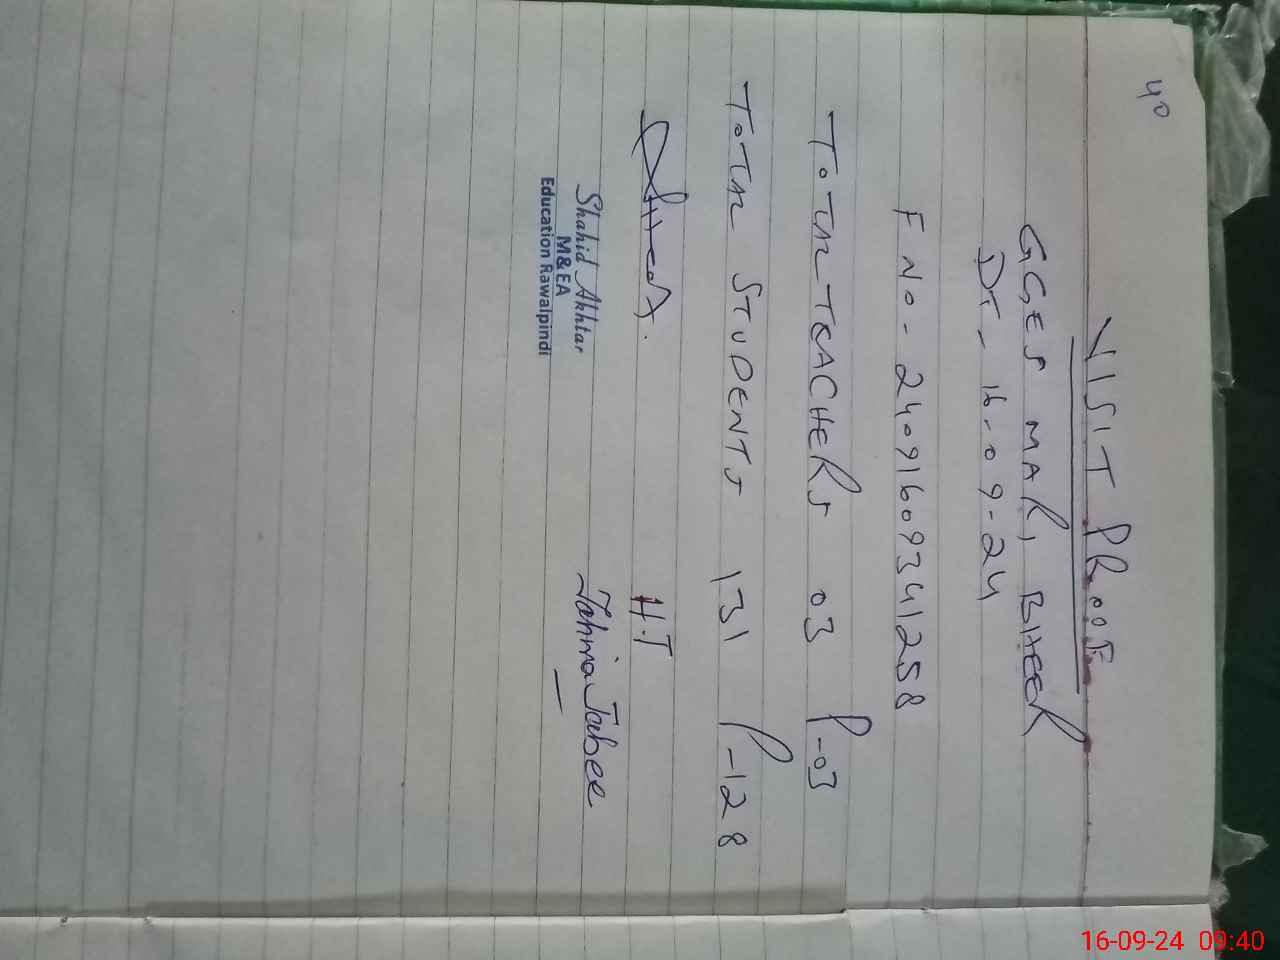 40
VISIT PROOF
GGES MARI BHEER
DT - 16-09-24
F NO - 24091609341258
TOTAL TEACHERS 03 P-03
TOTAL STUDENTS 131 P-128
H.T
Shahid Akhtar
M&EA
Education Rawalpindi
16-09-24 09:40